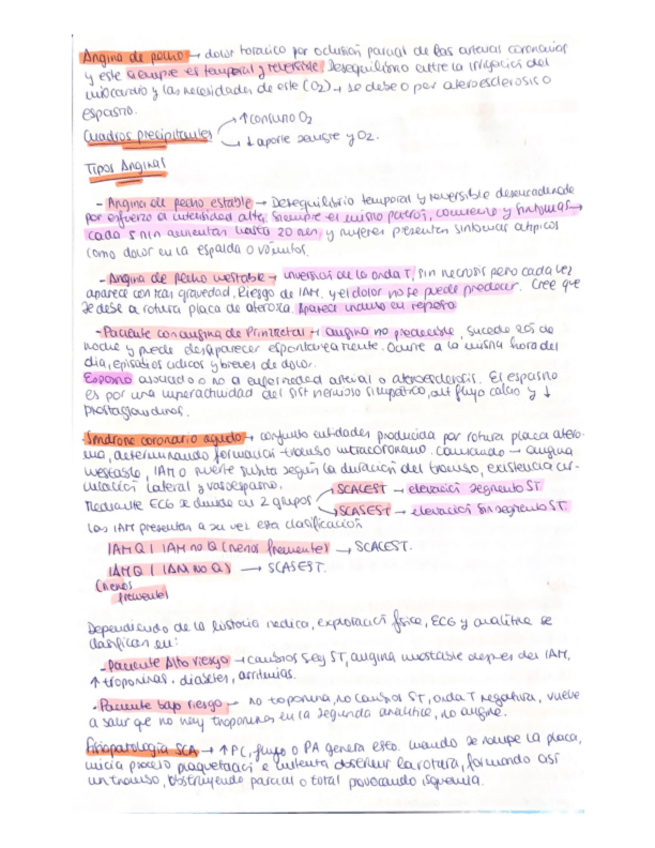 Angina de pecho → dolor toracico por oclusión parcial de las arterias coronarias
y este siempre es temporal y reversible. Desequilibrio entre la irrigación del
miocardio y las necesidades de este (O2) → se debe o por ateroesclerosis o
espasmo.
Cuadros precipitantes → ↑ consumo O2
→ ↓ aporte sangre y O2.
Tipos Anginas
- Angina de pecho estable → Desequilibrio temporal y reversible desencadenado
por esfuerzo a intensidad alta. Siempre el mismo patrón, comienzo y síntomas →
cada 5 min aumentan hasta 20 min, y mujeres presentan sintomas atipicos
como dolor en la espalda o vómitos.
- Angina de pecho inestable → inversión de la onda T, sin necrosis pero cada vez
aparece con más gravedad. Riesgo de IAM, y el dolor no se puede predecir. Cree que
se debe a rotura placa de ateroma. Aparece incluso en reposo
- Paciente con angina de Prinzmetal → angina no predecible, sucede de
noche y puede desaparecer espontaneamente. Ocurre a la misma hora del
dia, episodios ciclicos y breves de dolor.
Espasmo asociado o no a enfermedad arterial o ateroesclerosis. El espasmo
es por una hiperactividad del sist nervioso simpatico, alt flujo calcio y ↓
prostaglandinas.
Sindrome coronario agudo → conjunto entidades producida por rotura placa atero-
ma, determinando formación trombo intracoronario. Causando → angina
inestable, IAM o muerte subita según la duración del trombo, existencia cir-
culación lateral y vasoespasmo.
Mediante ECG se divide en 2 grupos → SCACEST → elevación segmento ST
→ SCASEST → elevación sin segmento ST.
Los IAM presentan a su vez esta clasificación
IAM Q | IAM no Q (menos frecuente) → SCACEST.
IAM Q | IAM no Q) → SCASEST.
(menos
frecuente)
Dependiendo de la historia medica, exploración física, ECG y analitica se
clasifican en:
- Paciente Alto riesgo → cambios seg ST, angina inestable despues del IAM,
↑ troponinas, diabetes, arritmias.
- Paciente bajo riesgo → no troponina, no cambios ST, onda T negativa, vuelve
a salir que no hay troponinas en la segunda analitica, no angina.
Fisiopatología SCA → ↑ FC, flujo o PA genera esto. Cuando se rompe la placa,
inicia proceso plaquetario e intenta obstruir la rotura, formando así
un trombo, obstruyendo parcial o total provocando isquemia.